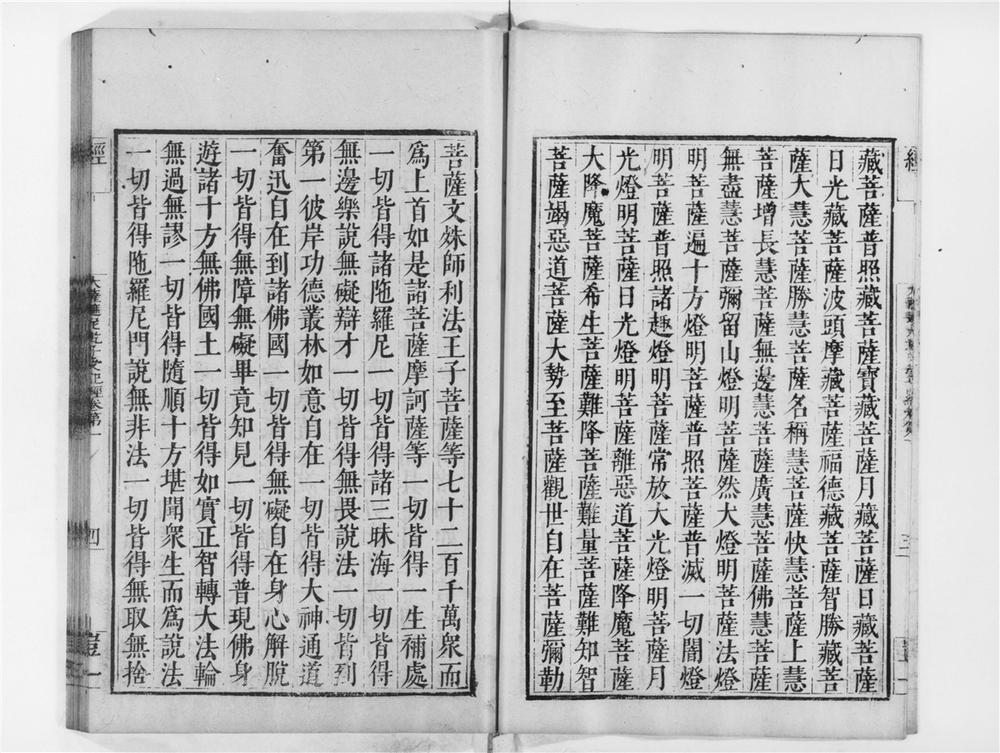 藏菩薩普照藏菩薩寶藏菩薩月藏菩薩日藏菩薩
日光藏菩薩波頭摩藏菩薩福德藏菩薩智勝藏菩
薩大慧菩薩勝慧菩薩名稱慧菩薩快慧菩薩上慧
菩薩增長慧菩薩無邊慧菩薩廣慧菩薩佛慧菩薩
無盡慧菩薩彌留山燈明菩薩然大燈明菩薩法燈
明菩薩遍十方燈明菩薩普照菩薩普滅一切闇燈
明菩薩普照諸趣燈明菩薩常放大光燈明菩薩月
光燈明菩薩日光燈明菩薩離惡道菩薩降魔菩薩
大降魔菩薩希生菩薩難降菩薩難量菩薩難知智
菩薩竭惡道菩薩大勢至菩薩觀世自在菩薩彌勒
經
三
菩薩文殊師利法王子菩薩等七十二百千萬眾而
爲上首如是諸菩薩摩訶薩等一切皆得一生補處
一切皆得諸陁羅尼一切皆得諸三昧海一切皆得
無邊樂說無礙辯才一切皆得無畏說法一切皆到
第一彼岸功德叢林如意自在一切皆得大神通道
奮迅自在到諸佛國一切皆得無礙自在身心解脫
一切皆得無障無礙畢竟知見一切皆得普現佛身
遊諸十方無佛國土一切皆得如實正智轉大法輪
無過無謬一切皆得隨順十方堪聞眾生而爲說法
一切皆得陁羅尼門說無非法一切皆得無取無捨
經
大薩遮尼乾子受記經卷第一
四